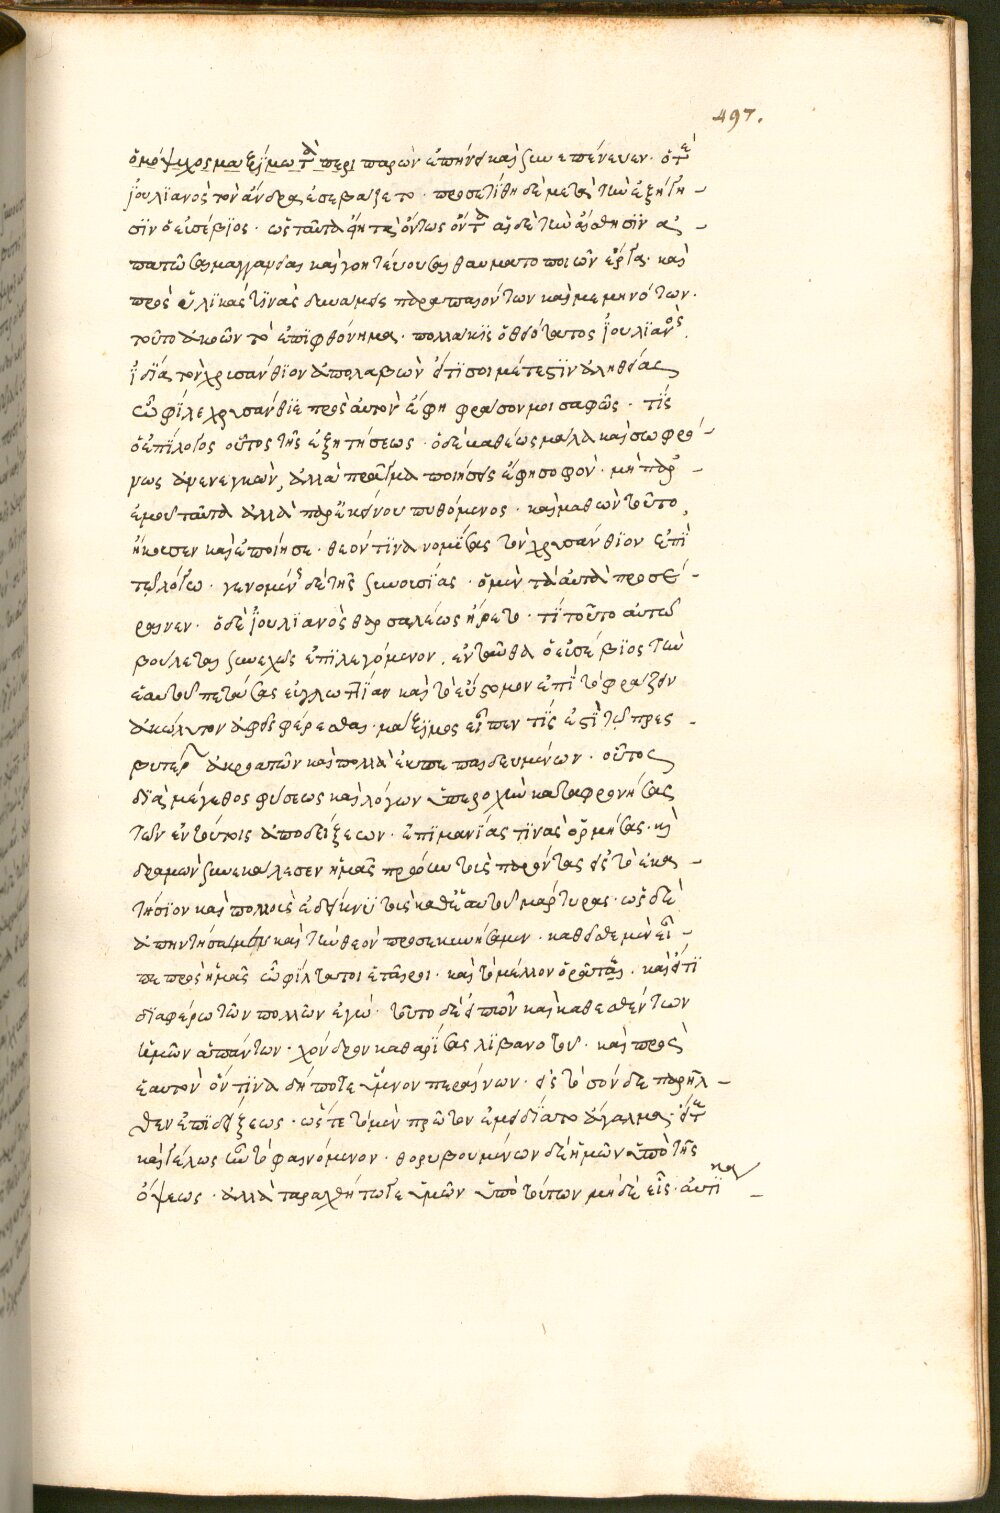 497.
ὁμόψηχος μαξίμω τὰ περι παρὼν ἐπήνει καὶ συνεπένευεν· ὅτε
ἰουλιανὸς τὸν ἄνδρα ἐσεβάζετο· προσετίθη δὲ μετὰ τὴν ἐξήγη-
σιν ὁ εὐσέβιος· ὡς ταῦτα εἴη τὰ ὄντως ὄντα αἱ δὲ τὴν αἴσθησιν ἀ-
πατῶσαι μαγγανίαι καὶ γοητεύουσαι θαυματοποιῶν ἔργα· καὶ
πρὸς ὑλικάς τινὰς δυνάμεις παραπαιόντων καὶ μεμηνότων·
τοῦτο ἀκούων τὸ ἐπιφθόνημα· πολλάκις ὁ θειότατος ἰουλιανὸς.
ἰδία τὸν χρυσανθίον ἀπολαβὼν εἴ τι σοι μέτεστιν ἀληθείας
ὦ φίλε χρυσάνθιε πρὸς αὐτὸν ἔφη φράσον μοι σαφῶς· τίς
ὁ ἐπίλογος οὗτος τῆς ἐξηγήσεως· ὁ δὲ βαθέως μάλα καὶ σωφρό-
νως ἀνενεγκὼν, ἀλλὰ πρᾶγμα ποιήσεις ἔφησοφὸν· μὴ παρ'-
ἐμοῦ ταῦτα ἀλλὰ παρ' ἐκείνου πυθόμενος· καὶ μαθὼν τοῦτο,
ἤκουσεν καὶ ἐποίησε· θεόν τινα νομίσας τὸν χρυσάνθιον ἐπὶ
τῷ λόγω· γενομένης δὲ τῆς συνουσίας· ὁ μὲν τὰ αὐτὰ προσε-
ραινεν· ὁ δὲ ἰουλιανὸς θαρσαλέως ἤρετο· τί τοῦτο αὐτῷ
βούλεται συνεχῶς ἐπιλεγόμενον. ἐνταῦθα ὁ εὐσέβιος τὴν
ἑαυτοῦ πετάσας εὐγλωττίαν καὶ τὸ εὔστομον ἐπὶ τὸ φράζειν
ἀκώλυτον ἀφεὶς φέρεσθαι· μάξιμος εἶπεν τίς ἐστὶ τῶν πρες-
βυτέρων ἀκροατῶν καὶ πολλὰ ἐκπεπαιδευμένων· οὗτος
διὰ μέγεθος φύσεως καὶ λόγων ὑπεροχὴν καταφρονήσας
τῶν ἐν τούτοις ἀποδείξεων· ἐπὶ μανίας τινὰς ὁρμήσας· καὶ
δραμὼν συνεκάλεσεν ἡμᾶς πρώην τοὺς παρόντας εἰς τὸ ἑκα-
τήσιον καὶ πολλοὺς ἐδείκνυ τοὺς καθ' ἑαυτοῦ μάρτυρας· ὡς δὲ
ἀπηντήσαμεν καὶ τὴν θεὸν προσεκυνήσαμεν· καθεῖσθε μὲν εἶ-
πε πρὸς ἡμᾶς ὦ φίλτατοι ἑταῖροι· καὶ τὸ μέλλον ὁρᾶται· καὶ εἴ τι
διαφέρω τῶν πολλῶν ἐγώ· τοῦτο δὲ εἰπὼν καὶ καθεσθέντων
ἡμῶν ἁπάντων· χόνδρον καθαρίσας λιβανοτοῦ· καὶ πρὸς
ἑαυτὸν ὅν τινα δή ποτε ὕμνον περαίνων· εἰς τὸσόν δε παρῆλ-
θεν ἐπιδείξεως· ὥστε τὸ μὲν πρῶτον ἐμειδία τὸ ἄγαλμα· εἶτε
καὶ γέλως ἦν τὸ φαινόμενον· θορυβουμένων δὲ ἡμῶν ὑπὸ τῆς
ὄψεως· ἀλλὰ ταραχθήτωγε ὑμῶν ὑπὸ τούτων μηδὲ εἷς· αὐτίκα -